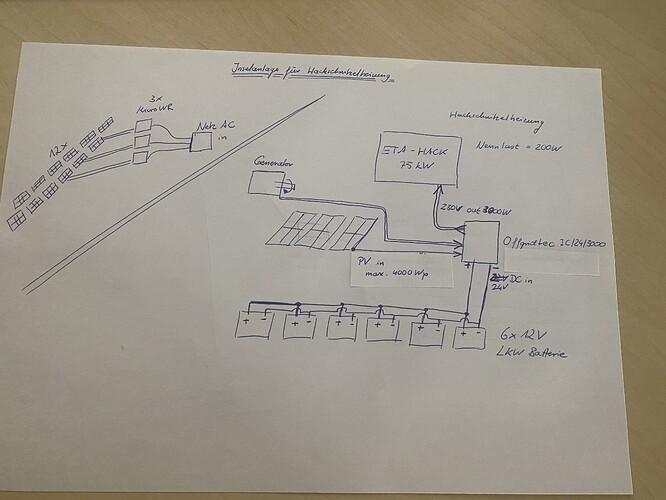 Inselanlage für Hackschnitzelheizung
3x
MicroWR
Netz AC
in
12x
Hackschnitzelheizung
Nennlast = 200W
ETA-HACK
75 kW
Generator
230V out 3000W
Offgridtec IC/24/3000
PV in
max. 4000 Wp
+ -
DC in
24V
+ - + - + - + - + - + -
6x 12V
LKW Batterie